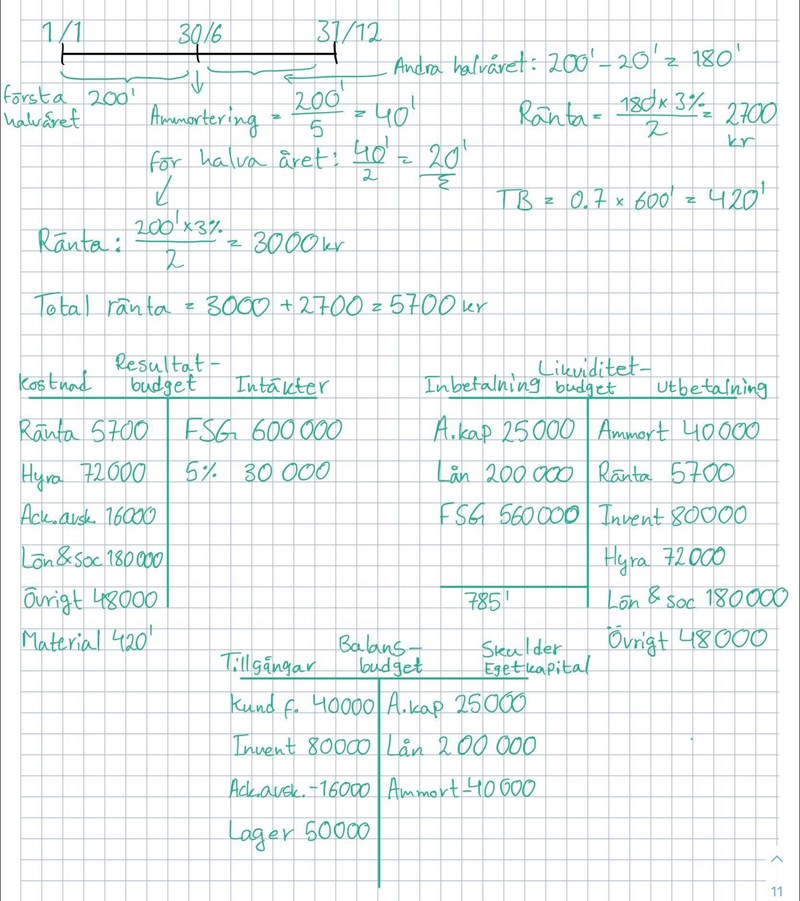 1/1 30/6 31/12
Andra halvåret: 200' - 20' = 180'
Första halvåret 200'
Ammortering = 200'/5 = 40'
Ränta = 180' x 3% / 2 = 2700 kr
för halva året: 40'/2 = 20'
TB = 0.7 x 600' = 420'
Ränta: 200' x 3% / 2 = 3000 kr
Total ränta = 3000 + 2700 = 5700 kr
Resultat-budget
Kostnad Intäkter
Ränta 5700 FSG 600 000
Hyra 72000 5% 30 000
Ack.avsk. 16000
Lön & soc 180 000
Övrigt 48000
Material 420'
Likviditet-budget
Inbetalning Utbetalning
A.kap 25000 Ammort 40000
Lån 200 000 Ränta 5700
FSG 560000 Invent 80000
Hyra 72000
785' Lön & soc 180000
Övrigt 48000
Balans-budget
Tillgångar Skulder Eget kapital
Kund f. 40000 A.kap 25000
Invent 80000 Lån 200 000
Ack.avsk. -16000 Ammort -40 000
Lager 50000
11